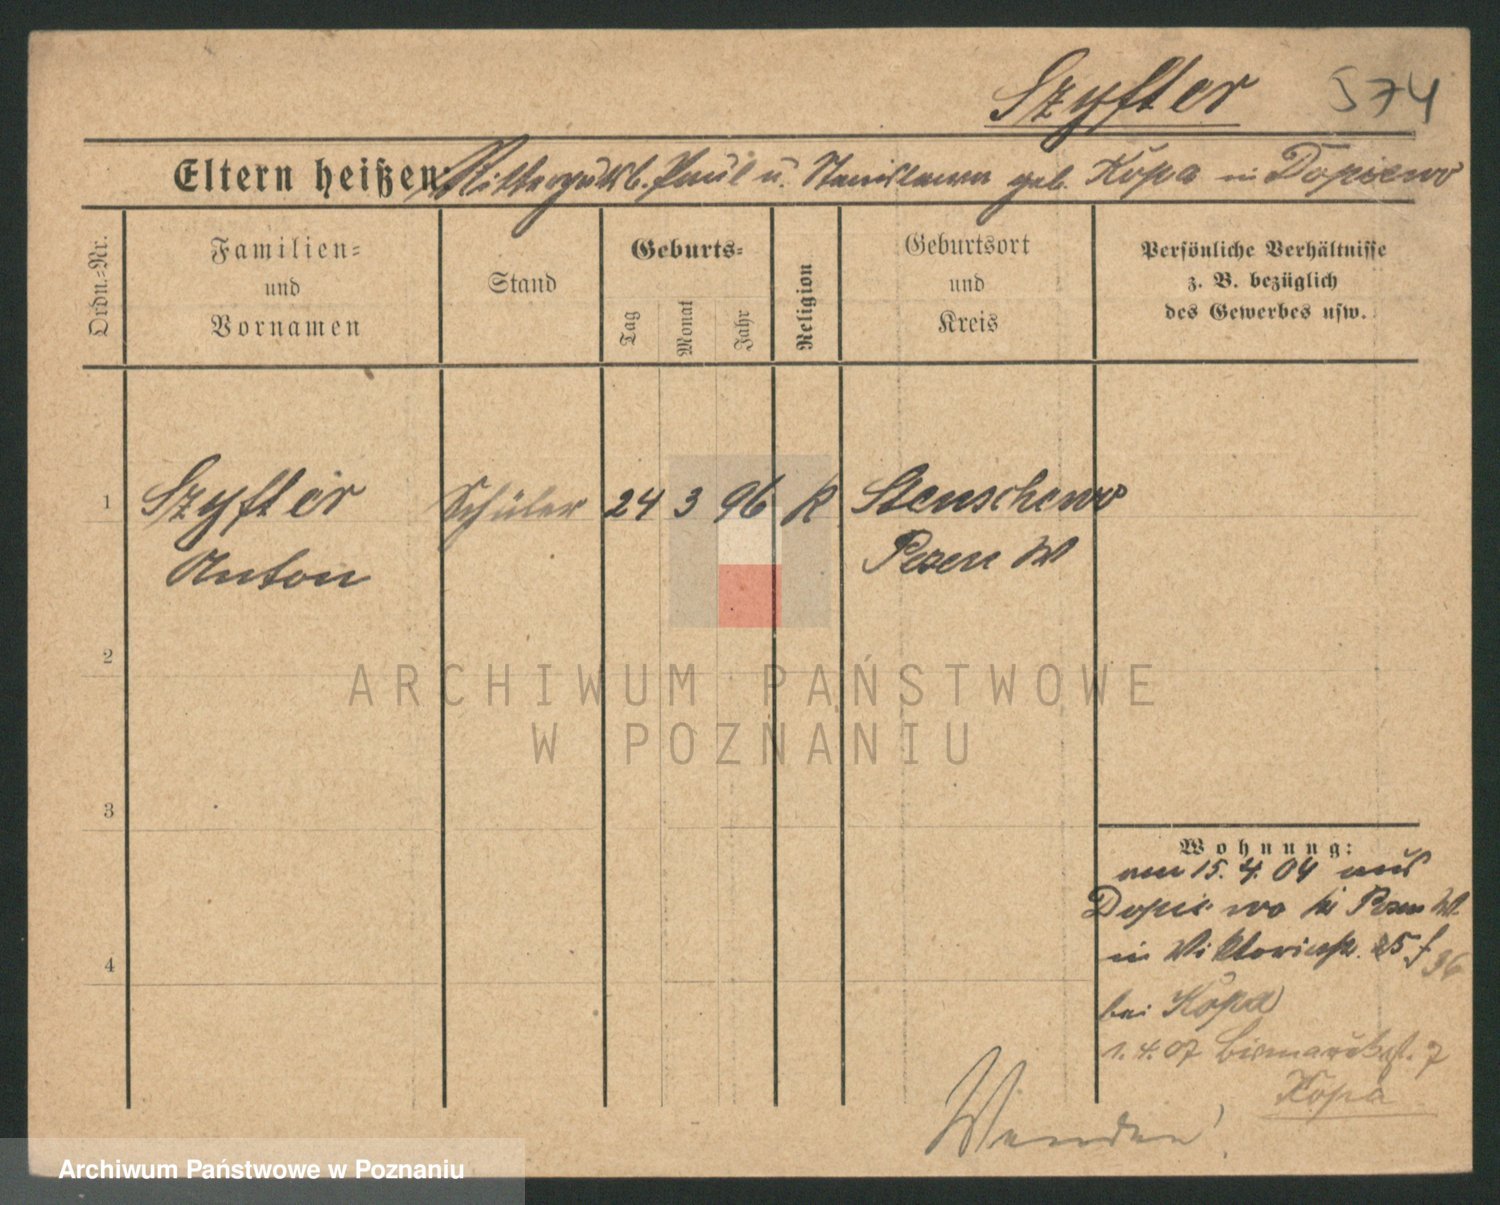 Szyfter 574
Eltern heißen: Rittergutsb. Paul u. Stanislawa geb. Kopa in Dopiewo
Ordn.-Nr.
Familien-
und
Vornamen
Stand
Geburts-
Tag
Monat
Jahr
Religion
Geburtsort
und
Kreis
Persönliche Verhältnisse
z. B. bezüglich
des Gewerbes usw.
1 Szyfter Schüler 24 3 96 K Stenschewo
Anton Posen W
2
ARCHIWUM PAŃSTWOWE
W POZNANIU
3
Wohnung:
am 15. 4. 04 aus
Dopiewo Posen W.
in Viktoriastr. 25 f 36
4
bei Kopa
1. 4. 07 Bismarckst. 7
Kopa
Wenden!
Archiwum Państwowe w Poznaniu